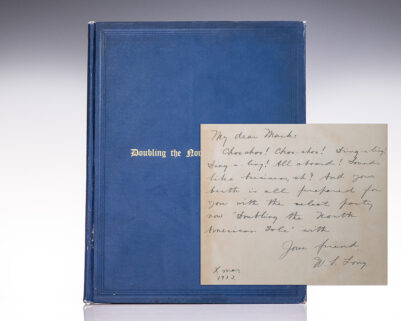 Doubling the Nor
My dear Mark:
Choo choo! Choo-choo! Ding-a-ling
Ding-a-ling! All aboard! Sounds
like business, eh? And your
berth is all prepared for
you with the select party
now "Doubling the North
American Pole" with
Your friend
W. L. Long
Xmas
1912